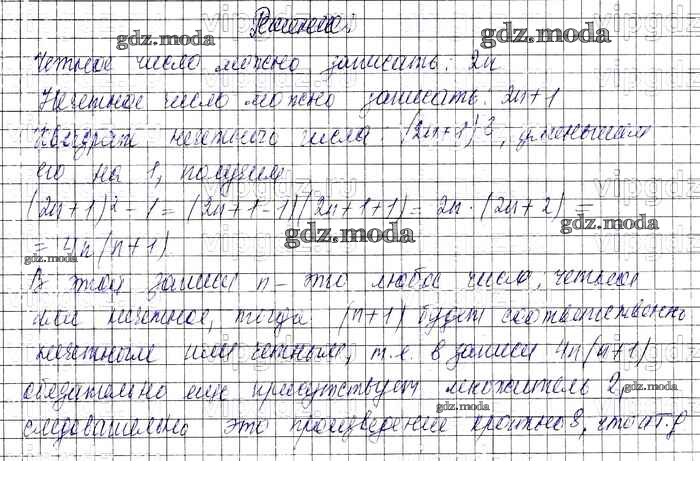 Решение:
Четное число можно записать: 2n
Нечетное число можно записать: 2n+1
Квадрат нечетного числа: (2n+1)², уменьшая
его на 1, получим
(2n+1)² - 1 = (2n+1-1)(2n+1+1) = 2n·(2n+2) =
= 4n(n+1)
В этой записи n - это любое число, четное
или нечетное, тогда (n+1) будет соответственно
нечетным или четным, т.е. в записи 4n(n+1)
обязательно еще присутствует множитель 2,
следовательно это произведение кратно 8, что и т.д
gdz.moda
gdz.moda
gdz.moda
gdz.moda
gdz.moda
gdz.moda
vipgdz
vipgdz.ru